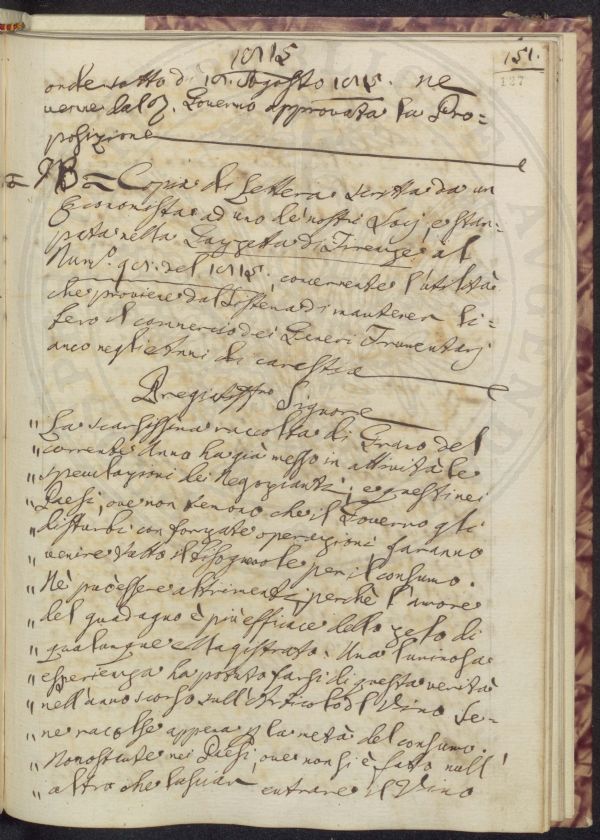 1815
151.
187
onde sotto dì 16. Agosto 1815. ne
venne dal Governo approvata la Pro=
posizione
NB = Copia di Lettera scritta da un
Economista ad uno de nostri Socj, e stam=
pata nella Gazzetta di Firenze al
Num.º 98. del 1815., concernente l'utilità
che proviene dal Sistema di mantener li=
bero il commercio dei Generi Frumentarj
anco negli Anni di carestia
Pregiatissmo Signore
" La scarsissima raccolta di Grano del
" corrente Anno ha già messo in attività le
" speculazioni dei Negozianti; e questi nei
" Paesi, ove non temono che il Governo gli
" disturbi con forzate operazioni, faranno
" venire tutto il bisognevole per il consumo.
" Nè può essere altrimenti; perchè l'amore
" del guadagno è più efficace dello zelo di
" qualunque Magistrato. Una luminosa
" esperienza ha potuto farsi di questa verità
" nell'anno scorso sull'Articolo del Vino. Se
" ne raccolse appena la metà del consumo.
" Nonostante nei Paesi, ove non si è fatto null'
" altro che lasciar entrare il Vino